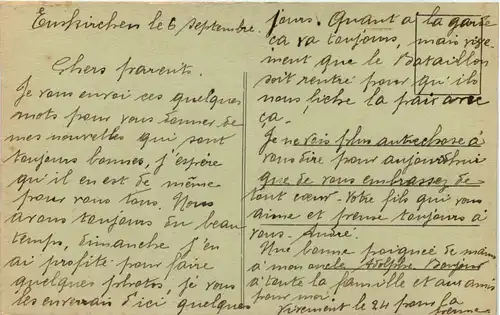 Euskirchen le 6 Septembre.
Chers parents.
Je vous envoi ces quelques
mots pour vous donner de
mes nouvelles qui sont
toujours bonnes, j'espère
qu'il en est de même
pour vous tous. Nous
avons toujours du beau
temps, dimanche j'en
ai profité pour faire
quelques photos, je vous
les enverrais d'ici quelques
jours. Quant a la garde
ça va toujours, mais
que le Bataillon
soit rentré pour qu'ils
nous fiche la paix avec
ça.
Je ne vois plus autre chose à
vous dire pour aujourd'hui
que de vous embrassez de
tout cœur. Votre fils qui vous
aime et pense toujours à
vous. André.
Une bonne poignée de mains
a mon oncle Adolphe. Bonjour
a toute la famille et aux amis
pour moi.
Vivement le 24 pour la